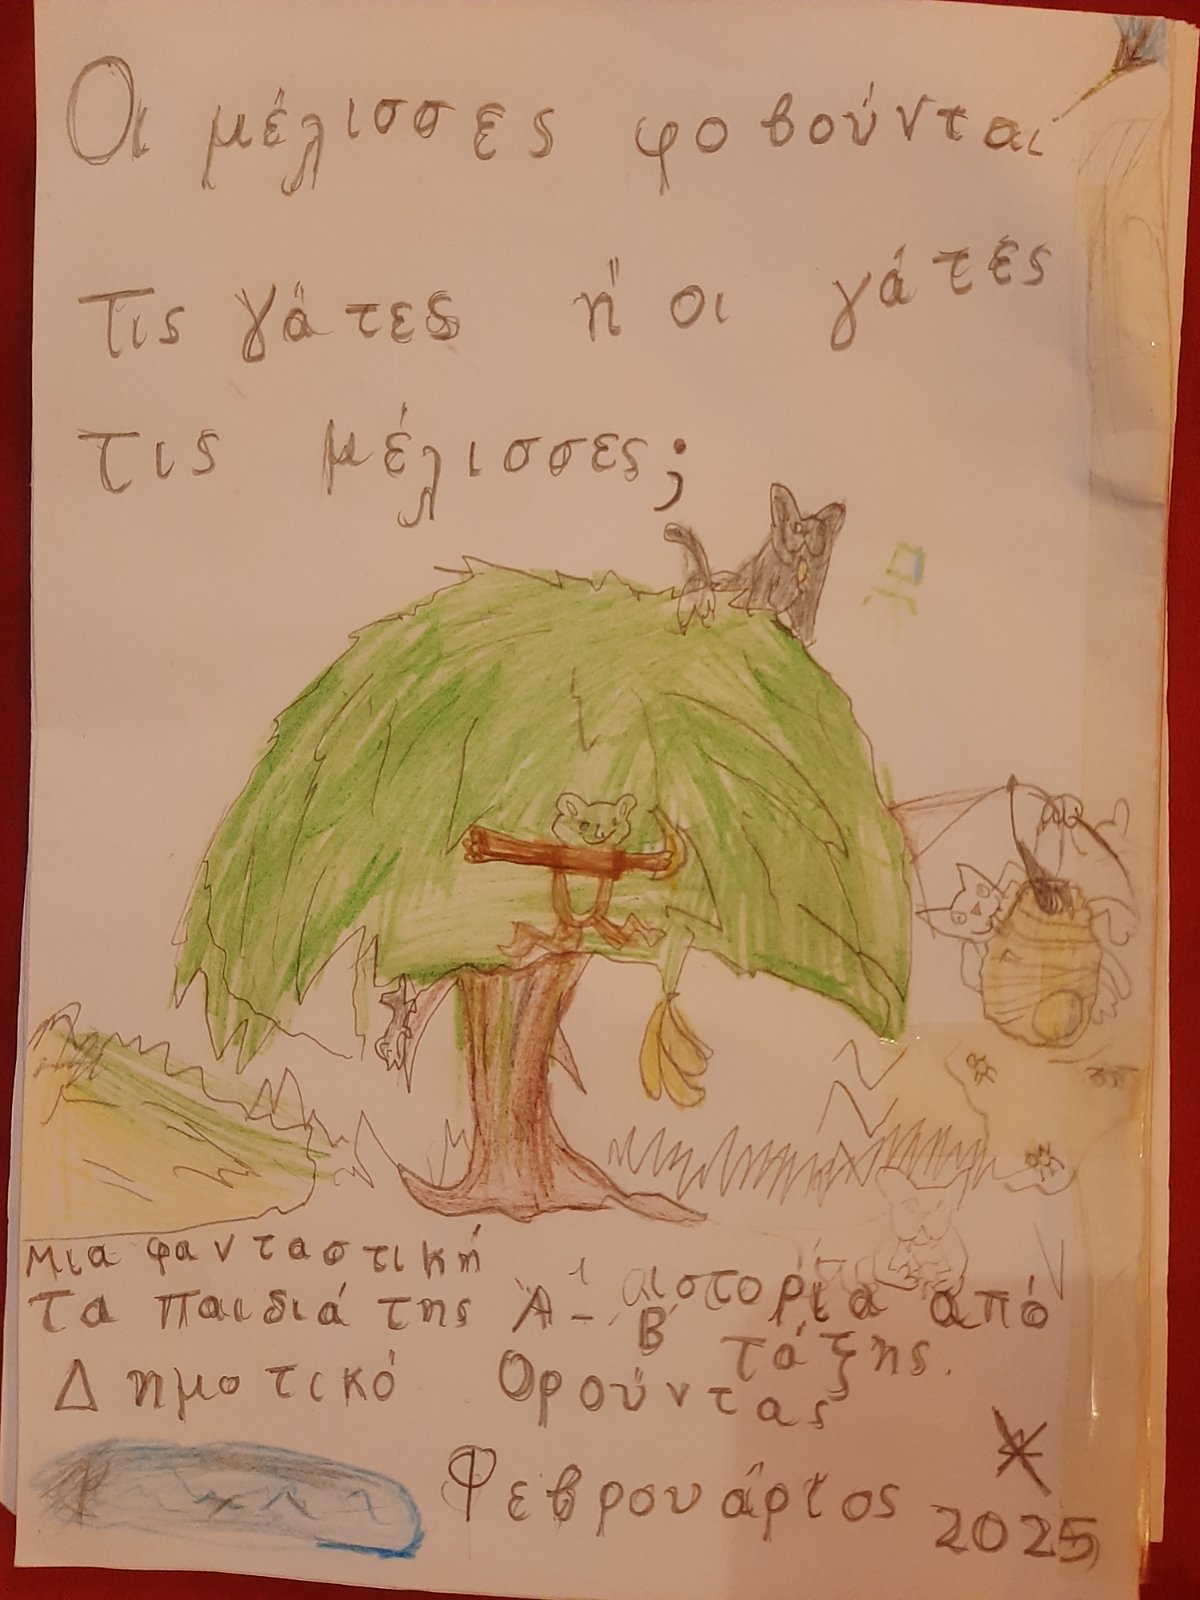 Οι μέλισσες φοβούνται
τις γάτες ή οι γάτες
τις μέλισσες;
μια φανταστική ιστορία από
τα παιδιά της Α΄- Β΄ τάξης.
Δημοτικό Ορούντας
Φεβρουάριος 2025